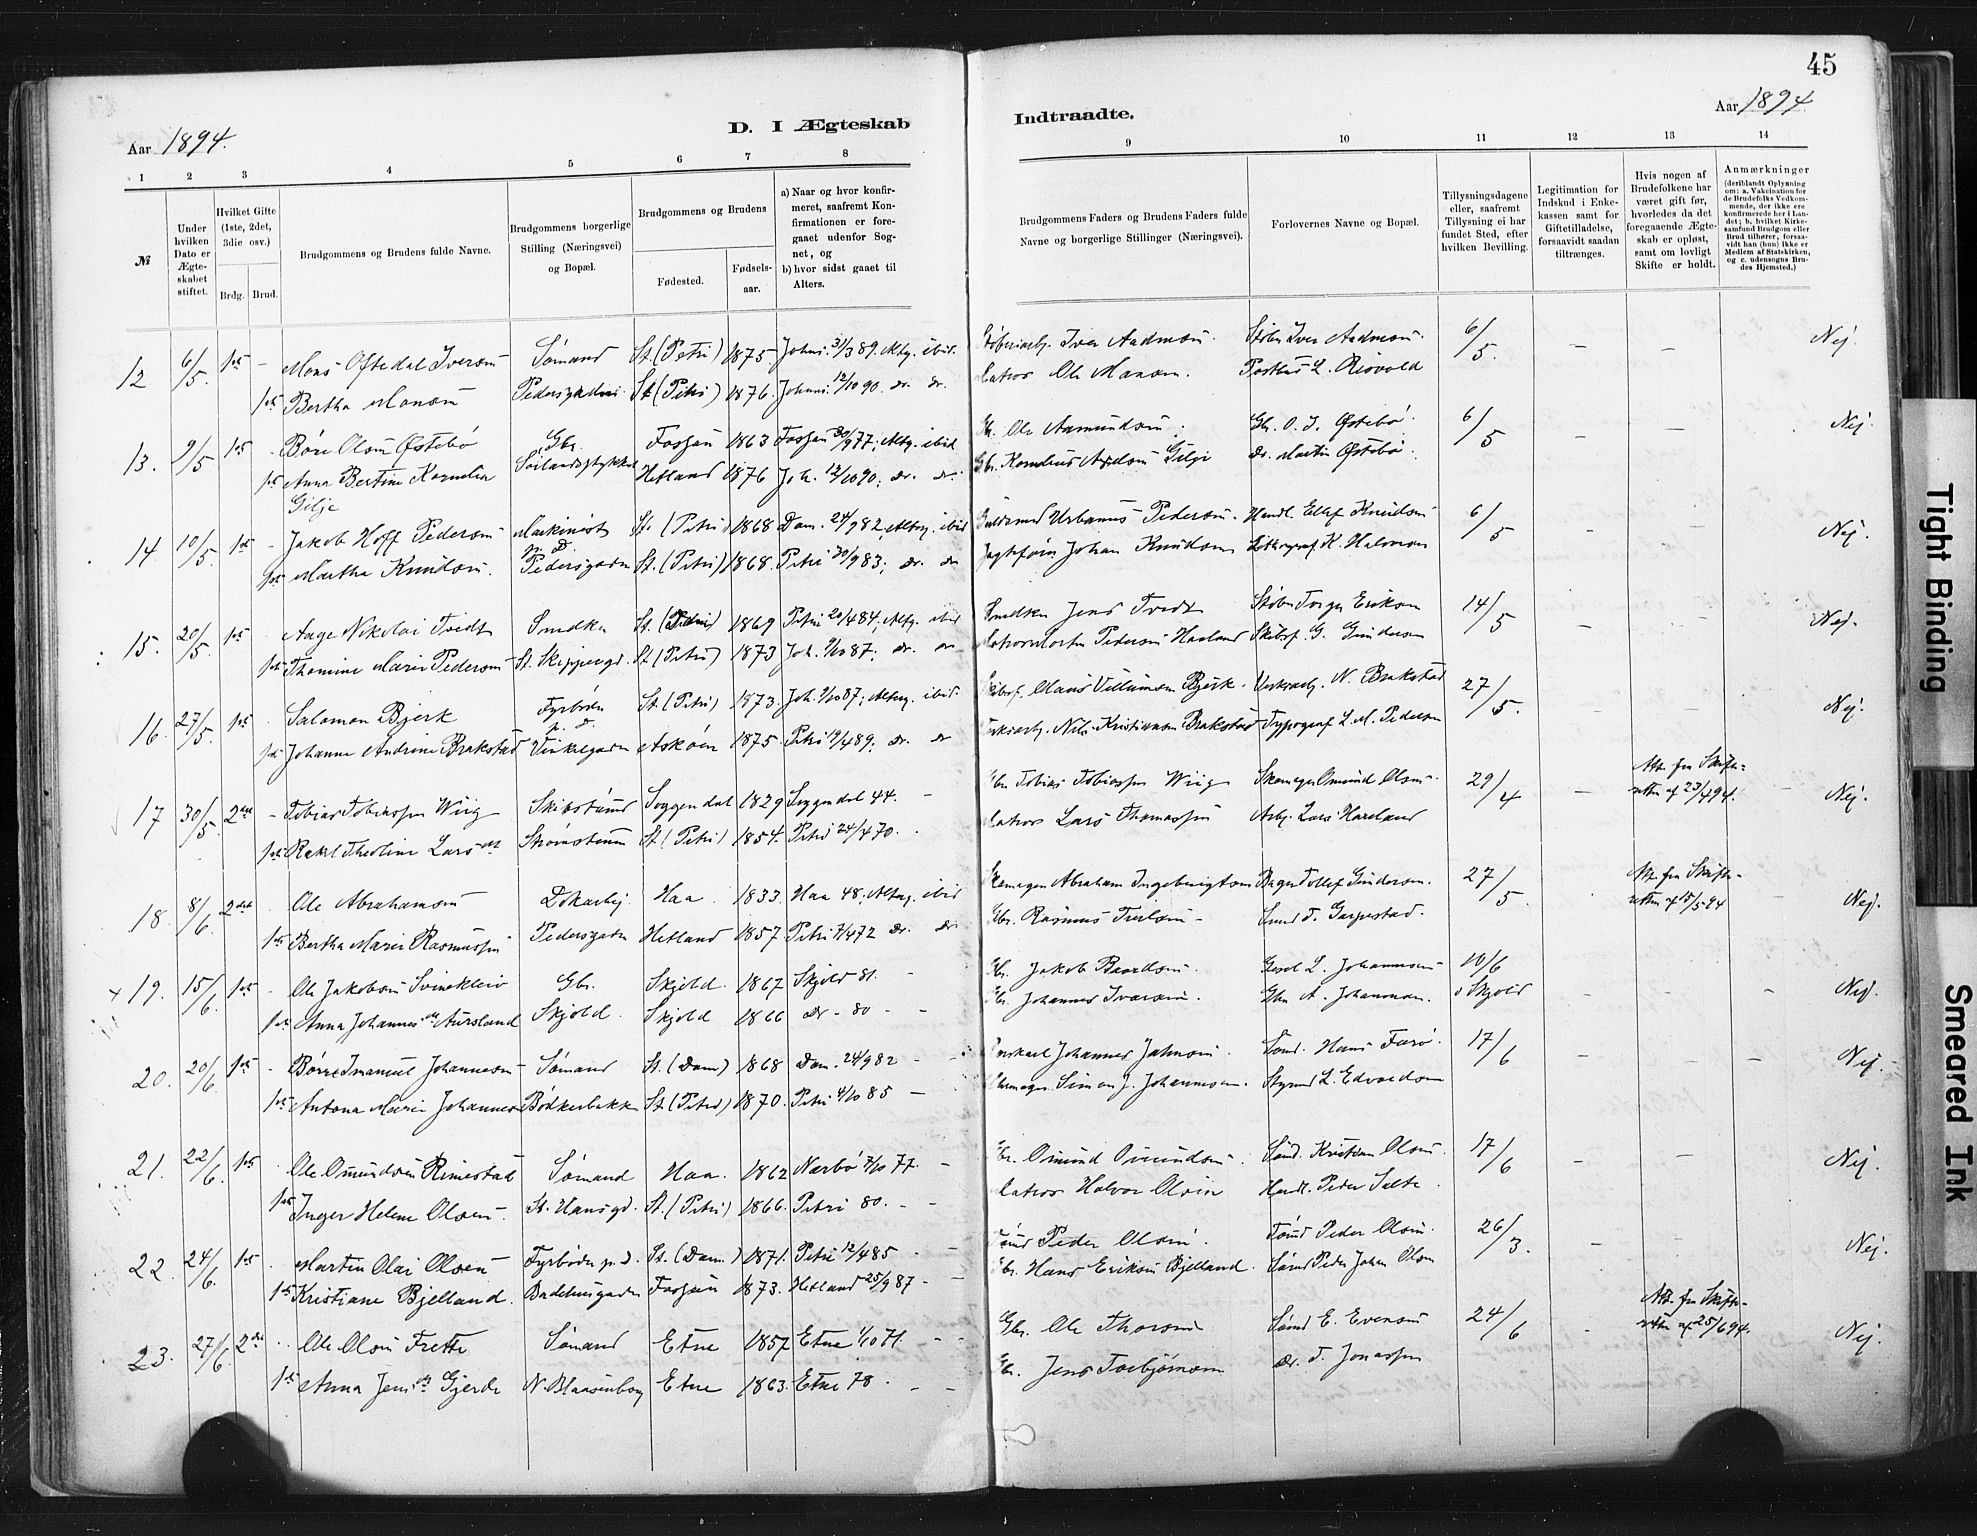 45
D. I Ægteskab Indtraadte.
Aar 1894. Aar 1894
1 2 3 4 5 6 7 8 9 10 11 12 13 14
№
Under hvilken Dato er Ægteskabet stiftet.
Hvilket Gifte (1ste, 2det, 3die osv.)
Brdg. Brud.
Brudgommens og Brudens fulde Navne.
Brudgommens borgerlige Stilling (Næringsvei) og Bopæl.
Brudgommens og Brudens
Fødested. Fødselsaar.
a) Naar og hvor konfirmeret, saafremt Konfirmationen er foregaaet udenfor Sognet, og
b) hvor sidst gaaet til Alters.
Brudgommens Faders og Brudens Faders fulde Navne og borgerlige Stillinger (Næringsvei).
Forlovernes Navne og Bopæl.
Tillysningsdagene eller, saafremt Tillysning ei har fundet Sted, efter hvilken Bevilling.
Legitimation for Indskud i Enkekassen samt for Giftetilladelse, forsaavidt saadan tiltrænges.
Hvis nogen af Brudefolkene har været gift før, hvorledes da det foregaaende Ægteskab er opløst, samt om lovligt Skifte er holdt.
Anmærkninger
(deriblandt Oplysning om: a. Vakcination for de Brudefolks Vedkommende, der ikke ere konfirmerede her i Landet; b. hvilket Kirkesamfund Brudgom eller Brud tilhører, forsaavidt han (hun) ikke er Medlem af Statskirken, og c. udensogns Brudes Hjemsted.)
12 6/5. 1ste - Mons Oftedal Iversen Sømand St. (Petri) 1875 Johs. 31/3 89. Altg. ibid. Iver Aadnesen. Iver Aadnesen. 6/5. - - Nej.
1ste Bertha Monsen St (Petri) 1876. Johs. 12/10 90. do. do. Matros Ole Monsen.
13. 9/5 1ste - Børe Olsen Østebø Gbr. Fossan 1863 Fossan 30/9 77; Altg. ibid Gbr. Ole Aamundsen. Gbr. O. J. Østebø. 6/5 - - Nej
1ste Anna Bertine Kornelia Hetland 1876 Joh. 12/10 90; do. do. Gbr. Kornelius Gilje do. Martin Østebø.
Gilje
14. 10/5. 1ste - Jakob Hoff Pedersen Maskinist St. (Petri) 1868 Dom. 24/9 82, Altg. ibid Urbanus Pedersen. Handl. Ellef Knudsen 6/5 - - Nej.
p. D.
1ste Martha Knudsen. Pedersgaden St. (Petri) 1868. Petri 30/9 83; do. do Johan Knudsen Lithograf K. Halvorsen
15. 20/5. 1ste - Aage Nikolai Tvedt Snedker St. (Petri) 1869 Petri 20/4 84; Altg. ibid Snedker Jens Tvedt Støber Torger Eriksen 14/5 - - Nej.
1ste Thomine Marie Pedersen St. Skippergd. St (Petri) 1873 Joh. 87; do. do Matros Morten Pedersen Haaland Skibsf. G. Gundersen
16. 27/5. 1ste - Salomon Bjerk Fyrbøder St. (Petri) 1873. Joh. 87; Altg. ibid. Claus Villumsen Bjerk. N. Brakstad 27/5. - - Nej.
p. D.
1ste Johanne Andrine Brakstad Vinkelgaden Askøen 1875. Petri 19/4 89; do. do Nils Kristiansen Brakstad Typograf L. M. Pedersen
17 30/5. 2det - Tobias Tobiassen Wiig Skibstømd Soggendal 1829 Soggendal 44. - Gbr. Tobias Tobiassen Wiig Skomager Omund Olsen. 29/4 - Att. fra Skifteretten af 23/4 94. - Nej.
1ste Rakel Theoline Larsdt Strømsteen St. (Petri) 1854. Petri 24/4 70. - Matros Lars Thomassen Arb. Lars Haaland
18. 8/6. 2det Ole Abrahamsen Dokarbej. Haa 1833. Haa 48; Altg. ibid Skomager Abraham Ingebrigtsen Bager Tollef Gundersen. 27/5. Att. fra Skifteretten af 15/5 94 Nej.
1ste Bertha Marie Rasmussen Pedersgaden Hetland 1857. Petri 7/4 72 do. do Gbr. Rasmus Smed T. Garpestad.
19. 15/6. 1ste - Ole Jakobsen Svinekleiv Gbr. Skjold. 1867 Skjold 81. - Gbr. Jakob Baardsen. L. Johannesen 10/6 - - - Nej.
1ste Anna Johannesdt Aursland Skjold. Skjold 1866 do - 80 - - Gbr. Johannes Ivarsen. Gbr A. Johannesen. i Skjold
20. 20/6. 1ste - Børre Imanuel Johannesen Sømand St. (Dom) 1868 Dom. 24/9 82 - - Johannes Jahnsen. Tømd. Hans Farø. 17/6 - - - Nej.
1ste Antona Marie Johannesen Bødkerbakken St. (Petri) 1870. Petri 4/10 85 - Skomager Simon J. Johannesen. Styrmd L. Edvardsen
21. 22/6. 1ste Ole Omundsen Rimestad Sømand Haa. 1862 Nærbø 7/10 77. - Gbr. Omund Omundsen. Sømd. Kristian Olsen. 17/6 - - Nej.
1ste Inger Helene Olsen. St. Hansgd. St. (Petri) 1866. Petri 80. - - Matros Halvor Olsen Handl. Peder Salte.
22. 24/6. 1ste Martin Olai Olsen Fyrbøder p. D. St. (Dom.) 1871. Petri 12/4 85 - - Tømd Peder Olsen. Tømd Peder Olsen. 26/3. - - Nej.
1ste Kristiane Bjelland. Badehusgaden Fossan 1873. Hetland 25/9 87 - - Gbr. Hans Eriksen Bjelland. Sømd Peder Johan Olsen
23. 27/6. 2det Ole Olsen Frette Sømand Etne 1857 Etne 1/10 71. - - Gbr. Ole Thorsen Sømd E. Evensen 24/6 - Att. fra Skifteretten af 25/6 94. Nej.
1ste Anna Jensdt Gjerde N. Blaasenborg Etne 1863. Etne 78. - - Gbr. Jens Torbjørnsen do. T. Jonassen
Tight Binding
Smeared Ink